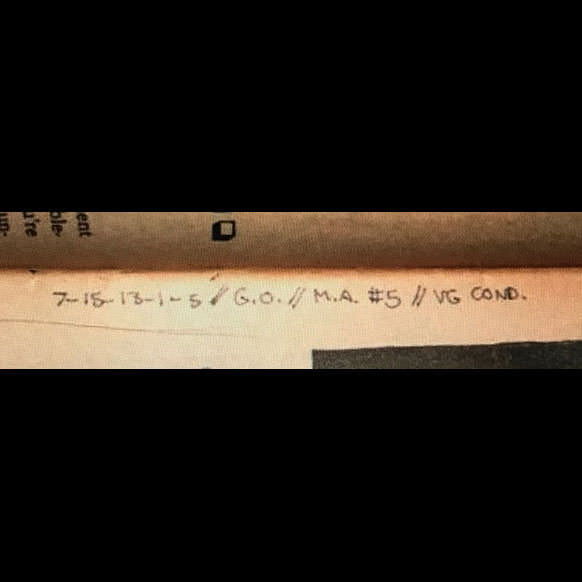 ent
ple-
u're
un-
7-15-13-1-5 // G.O. // M.A. #5 // VG COND.